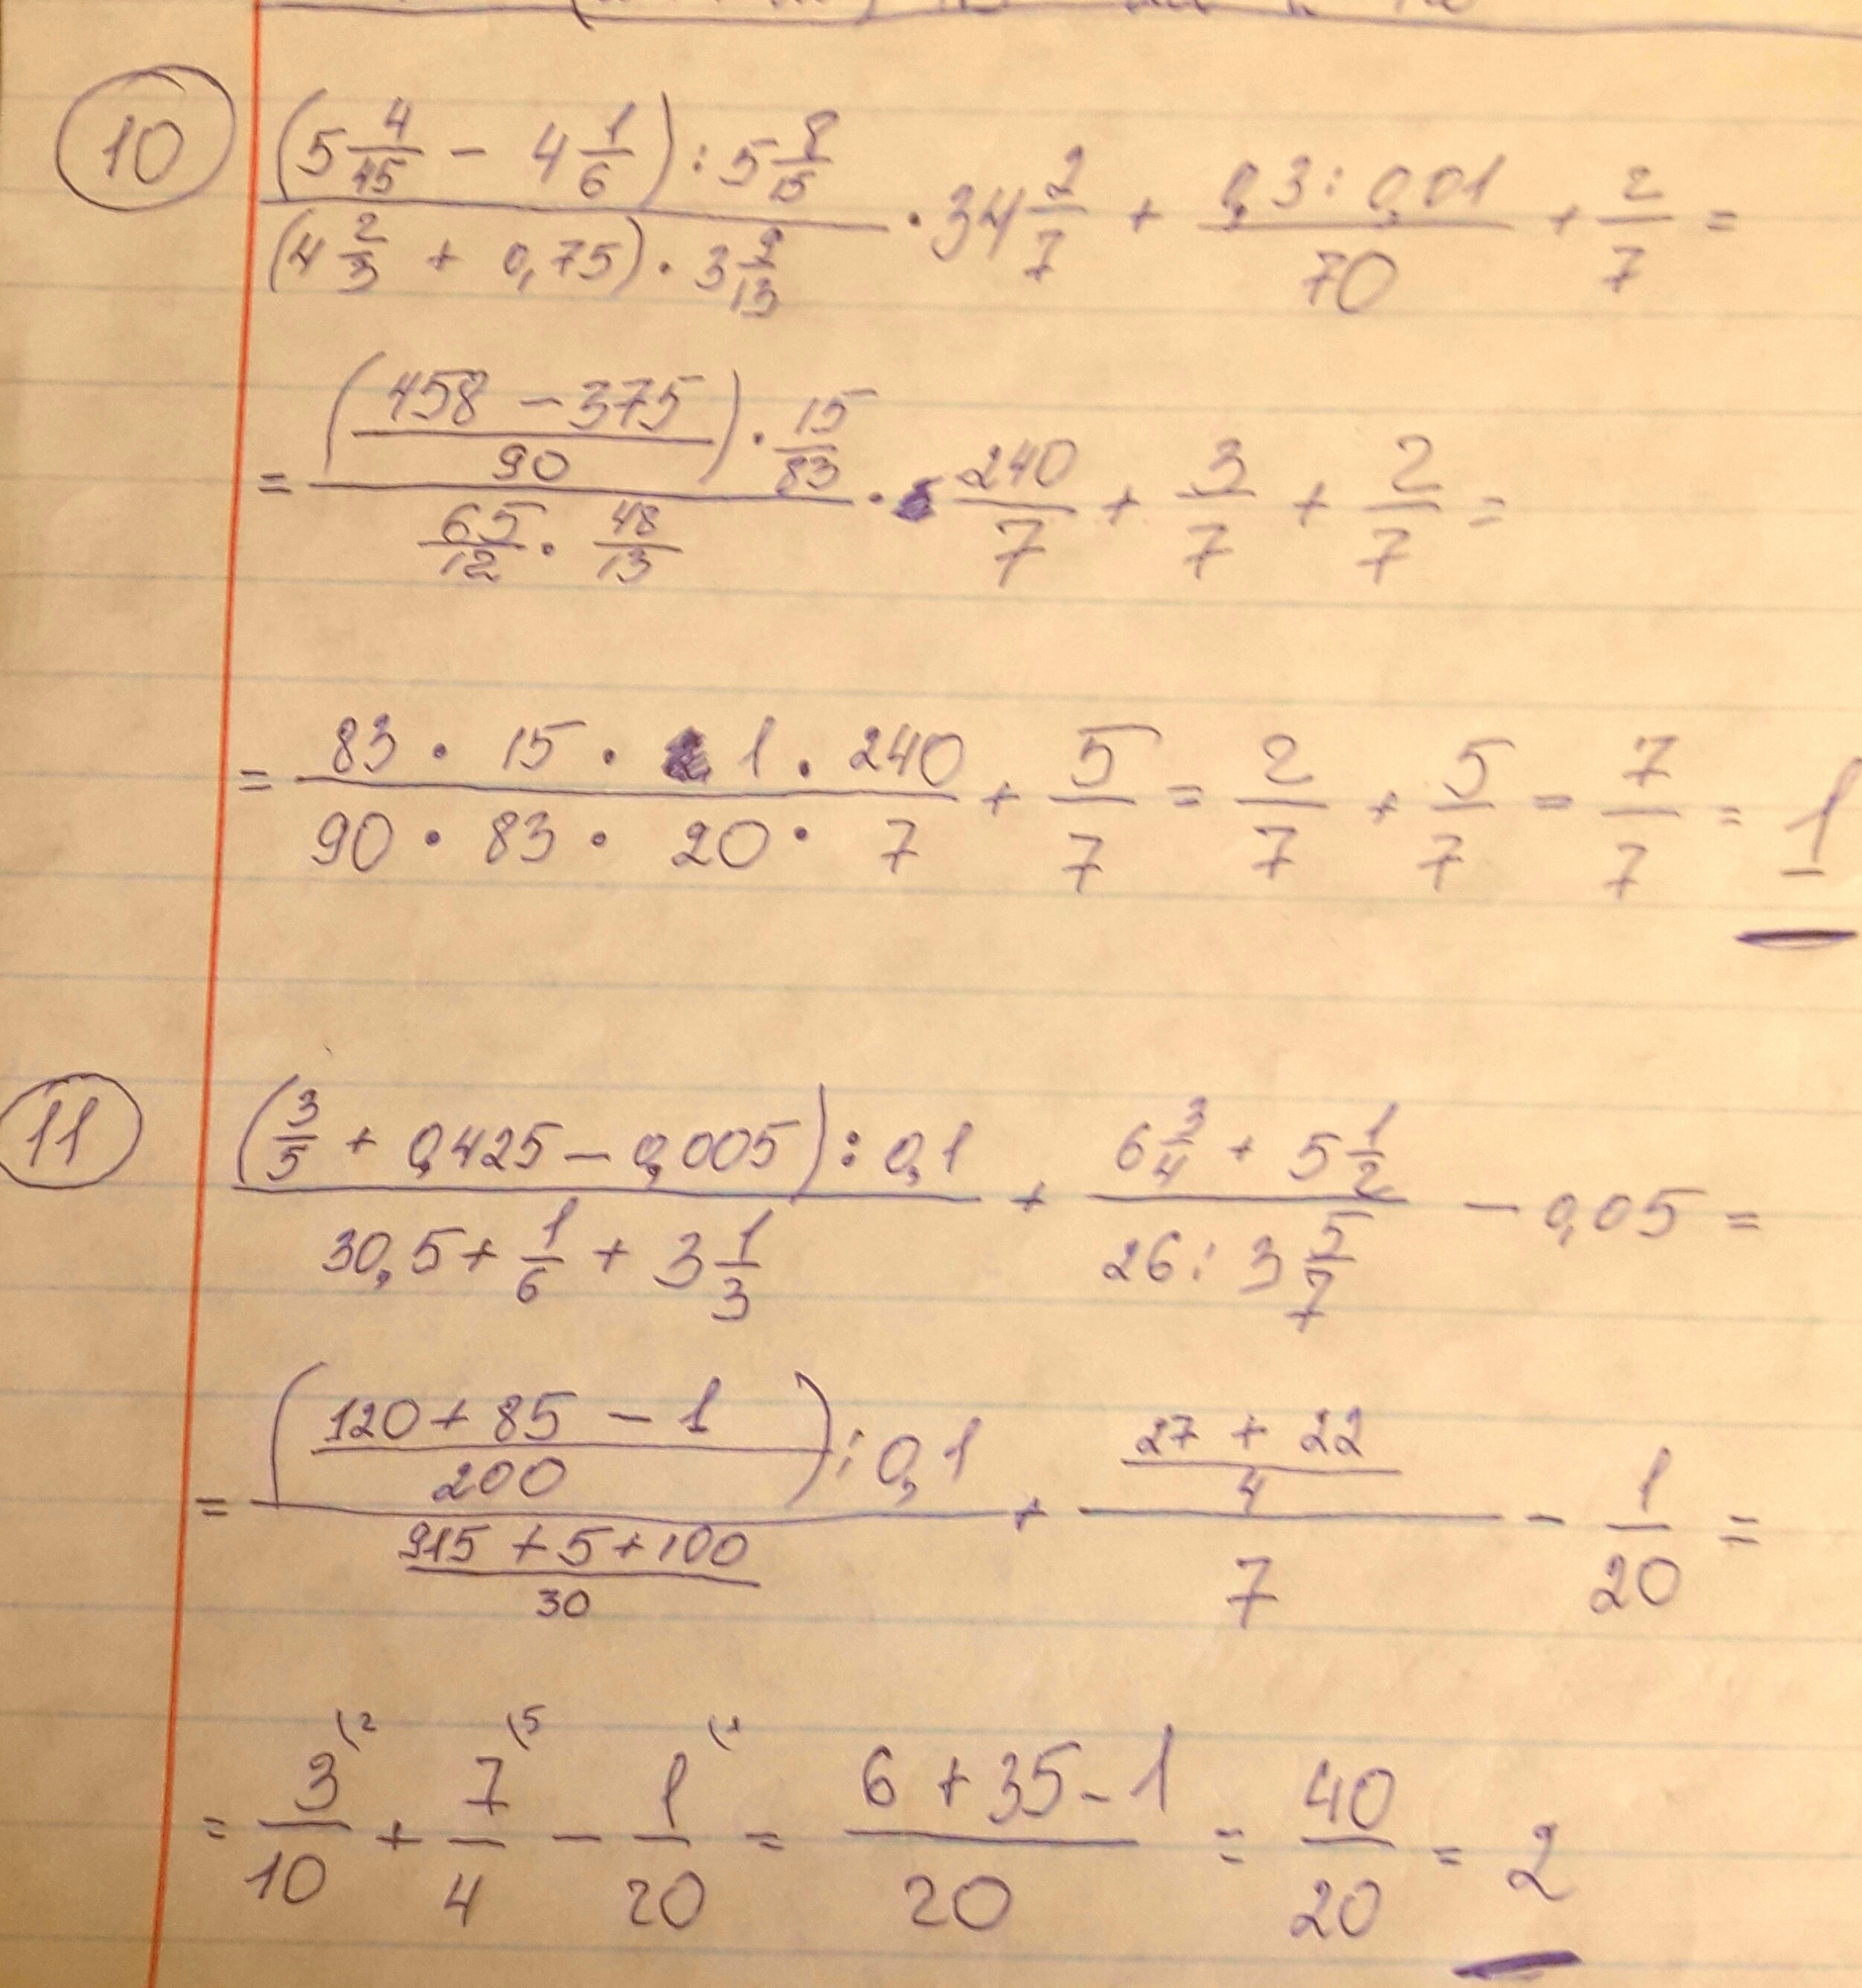 10 ((5 4/45 − 4 1/6) : 5 8/15)/((4 2/3 + 0,75) · 3 9/13) · 34 2/7 + (0,3 : 0,01)/70 + 2/7 =
= (((458 − 375)/90) · 15/83)/(65/12 · 48/13) · 240/7 + 3/7 + 2/7 =
= (83 · 15 · 1 · 240)/(90 · 83 · 20 · 7) + 5/7 = 2/7 + 5/7 = 7/7 = 1
11 ((3/5 + 0,425 − 0,005) : 0,1)/(30,5 + 1/6 + 3 1/3) + (6 3/4 + 5 1/2)/(26 : 3 5/7) − 0,05 =
= (((120 + 85 − 1)/200) : 0,1)/((915 + 5 + 100)/30) + ((27 + 22)/4)/7 − 1/20 =
= 3(2/10 + 7(5/4 − 1(1/20 = (6 + 35 − 1)/20 = 40/20 = 2